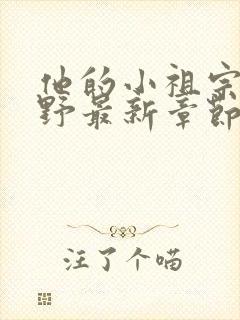 他的小祖宗
野最新章節
注了个喵